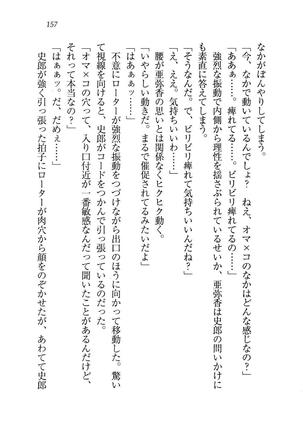 157
なかがぼんやりしてしまう。
「今、なかで動いているんでしょ？　ねえ、オマ×コのなかはどんな感じなの？」
「あぁぁ……。痺れてる……。ビリビリ痺れてるの……」
強烈な振動で内側から理性を揺さぶられているせいか、亜弥香は史郎の問いかけに
も素直に答えてしまう。
「そうなんだ。で、ビリビリ痺れて気持ちいいんだね？」
「え、ええ。気持ちいい……」
腰が亜弥香の思いとは関係なくヒクヒク動く。
「いやらしい動きだ。まるで催促されてるみたいだよ」
「はぁぁ……」
不意にローターが強烈な振動をつづけながら出口のほうに向かって移動した。驚い
て視線を向けると、史郎がコードをつかんで引っ張っているのだった。
「オマ×コの穴って、入り口付近が一番敏感なんだって聞いたことがあるんだけど、
それって本当なの？」
「はぁぁッ。だ、だめぇ……」
史郎が強く引っ張った拍子にローターが肉穴から顔をのぞかせたが、あわてて史郎